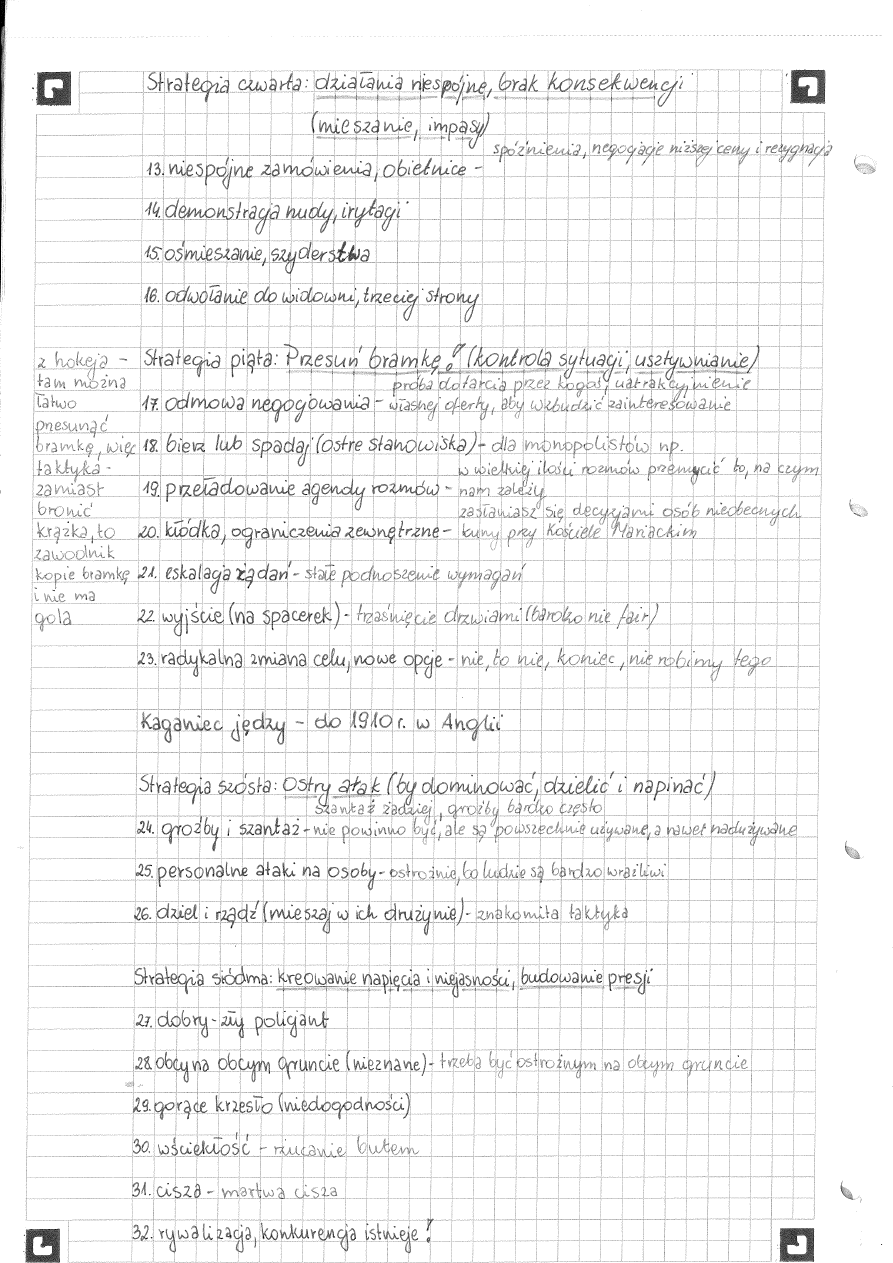 Strategia czwarta: działania niespójne, brak konsekwencji
(mieszanie, impasy)
spóźnienia, negocjacje niższej ceny i rezygnacja
13. niespójne zamówienia, obietnice -
14. demonstracja nudy, irytacji
15. ośmieszanie, szyderstwa
16. odwołanie do widowni, trzeciej strony
z hokeja -
tam można
łatwo
przesunąć
bramkę, więc
taktyka -
zamiast
bronić
krążka, to
zawodnik
kopie bramkę
i nie ma
gola
Strategia piąta: Przesuń bramkę! (kontrola sytuacji, usztywnianie)
próba dotarcia przez kogoś, uatrakcyjnienie
17. odmowa negocjowania - własnej oferty, aby wzbudzić zainteresowanie
18. bierz lub spadaj (ostre stanowiska) - dla monopolistów np.
w wielkiej ilości rozmów przemycić to, na czym
19. przeładowanie agendy rozmów - nam zależy
zasłaniasz się decyzjami osób nieobecnych
20. kłódka, ograniczenia zewnętrzne - kuny przy Kościele Mariackim
21. eskalacja żądań - stałe podnoszenie wymagań
22. wyjście (na spacerek) - trzaśnięcie drzwiami (bardzo nie fair)
23. radykalna zmiana celu, nowe opcje - nie, to nie, koniec, nie robimy tego
Kaganiec jędzy - do 1910 r. w Anglii
Strategia szósta: Ostry atak (by dominować, dzielić i napinać)
szantaż rzadziej, groźby bardzo często
24. groźby i szantaż - nie powinno być, ale są powszechnie używane, a nawet nadużywane
25. personalne ataki na osoby - ostrożnie, bo ludzie są bardzo wrażliwi
26. dziel i rządź (mieszaj w ich drużynie) - znakomita taktyka
Strategia siódma: kreowanie napięcia i niejasności, budowanie presji
27. dobry - zły policjant
28. obcy na obcym gruncie (nieznane) - trzeba być ostrożnym na obcym gruncie
29. gorące krzesło (niedogodności)
30. wściekłość - rzucanie butem
31. cisza - martwa cisza
32. rywalizacja, konkurencja istnieje!